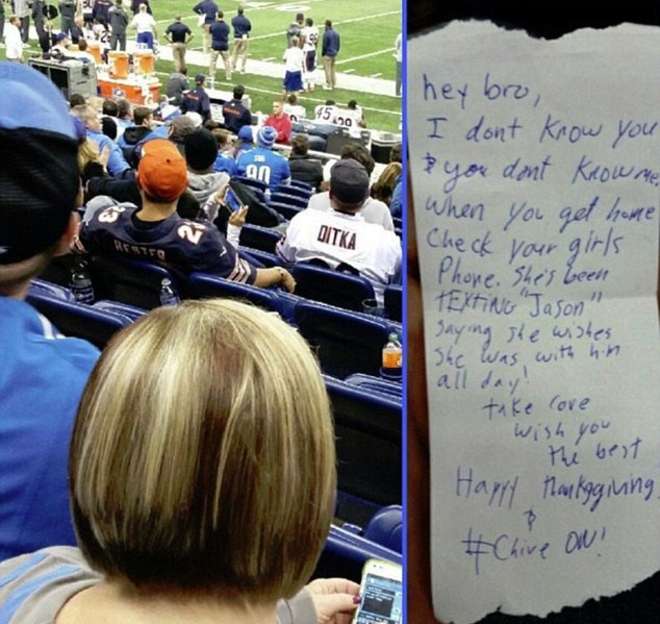 45
29
90
HESTER
23
DITKA
hey bro,
I dont know you
& you dont know me,
when you get home
Check your girls
Phone. She's been
TEXTING "Jason"
saying she wishes
She was with him
all day!
take care
wish you
the best
Happy Thanksgiving
&
#Chive ON!